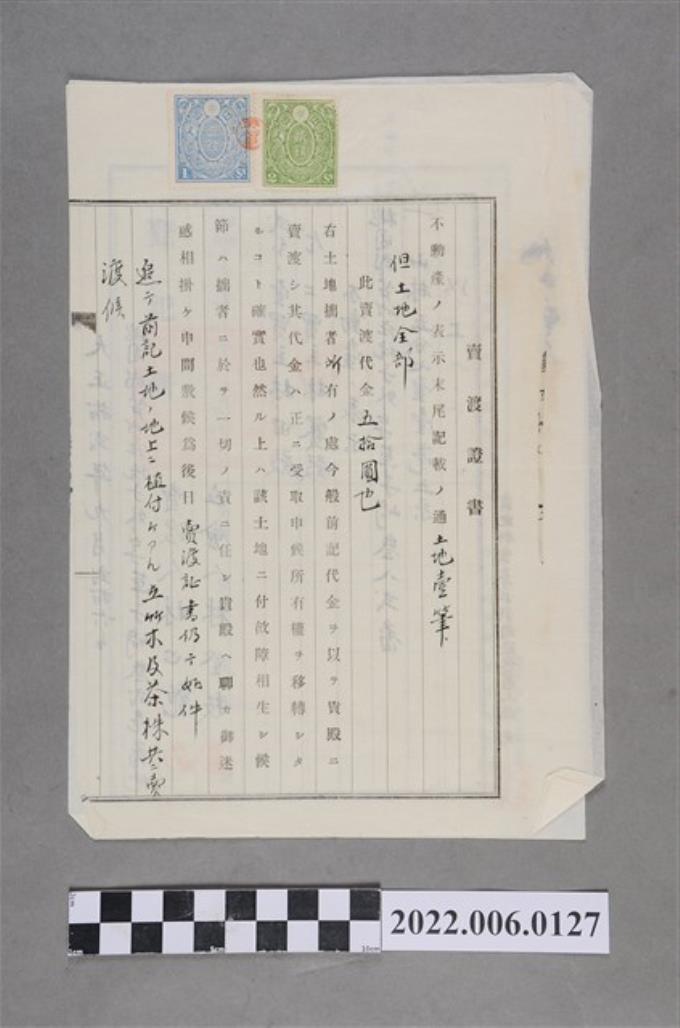 賣渡證書
不動產ノ表示末尾記載ノ通土地壹筆
但土地全部
此賣渡代金五拾圓也
右土地拙者所有ノ處今般前記代金ヲ以テ貴殿ニ
賣渡シ其代金ハ正ニ受取申候所有權ヲ移轉シタ
ルコト確實也然ル上ハ該土地ニ付故障相生シ候
節ハ拙者ニ於テ一切ノ責ニ任シ貴殿ヘ聊カ御迷
惑相掛ケ申間敷候爲後日賣渡証書仍テ如件
追テ前記土地ノ地上ニ植付ケアル立竹木及茶株共ニ賣
渡候
1 Sn
2 Sn
5cm
10cm
2022.006.0127